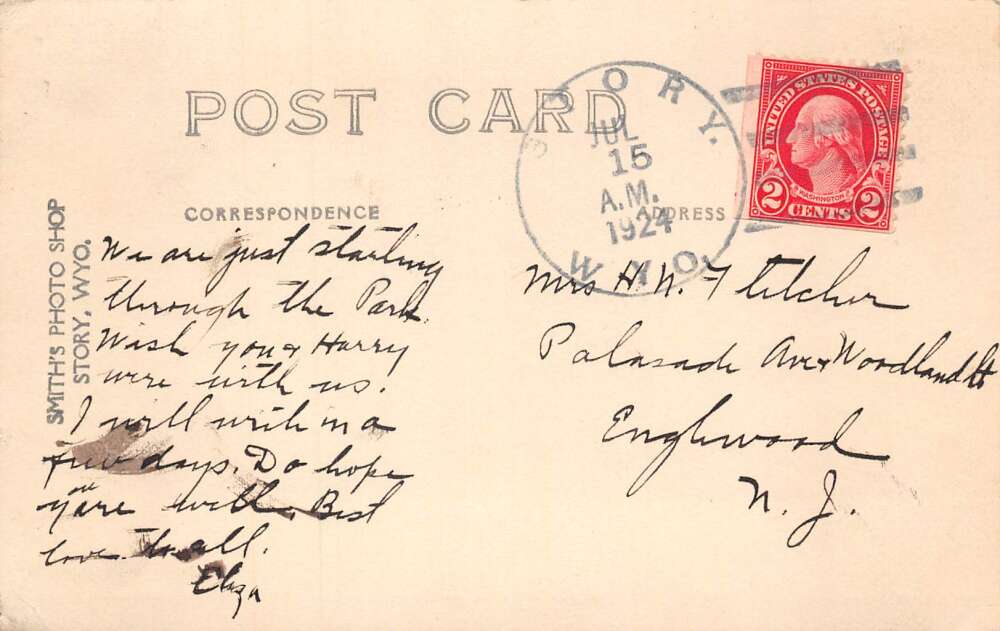 POST CARD
CORRESPONDENCE
ADDRESS
SMITH'S PHOTO SHOP
STORY, WYO.
STORY.
JUL
15
A.M.
1924
WYO.
UNITED STATES POSTAGE
WASHINGTON
2 CENTS 2
We are just starting
through the Park.
Wish you & Harry
were with us.
I will write in a
few days. Do hope
you are well. Best
love to all.
Eliza
Mrs H. N. Fletcher
Palasade Ave & Woodland St
Englewood
N. J.